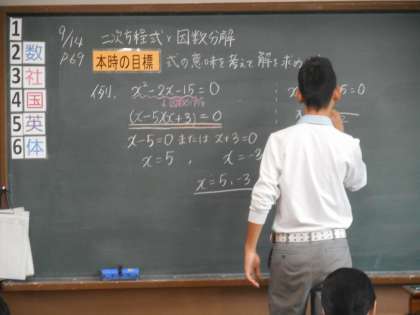 1
2 数
3 社
4 国
5 英
6 体
9/14 二次方程式と因数分解
P69 本時の目標 式の意味を考えて解を求め
例1. x²-2x-15=0
(x-5)(x+3)=0
x-5=0 または x+3=0
x=5, x=-3
x=5,-3